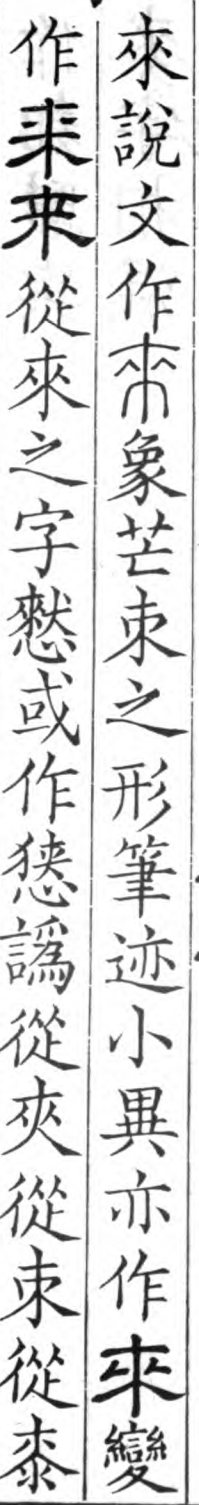 來說文作來象芒朿之形筆迹小異亦作来變
作来来從來之字憖或作㹜譌從夾從朿從桼